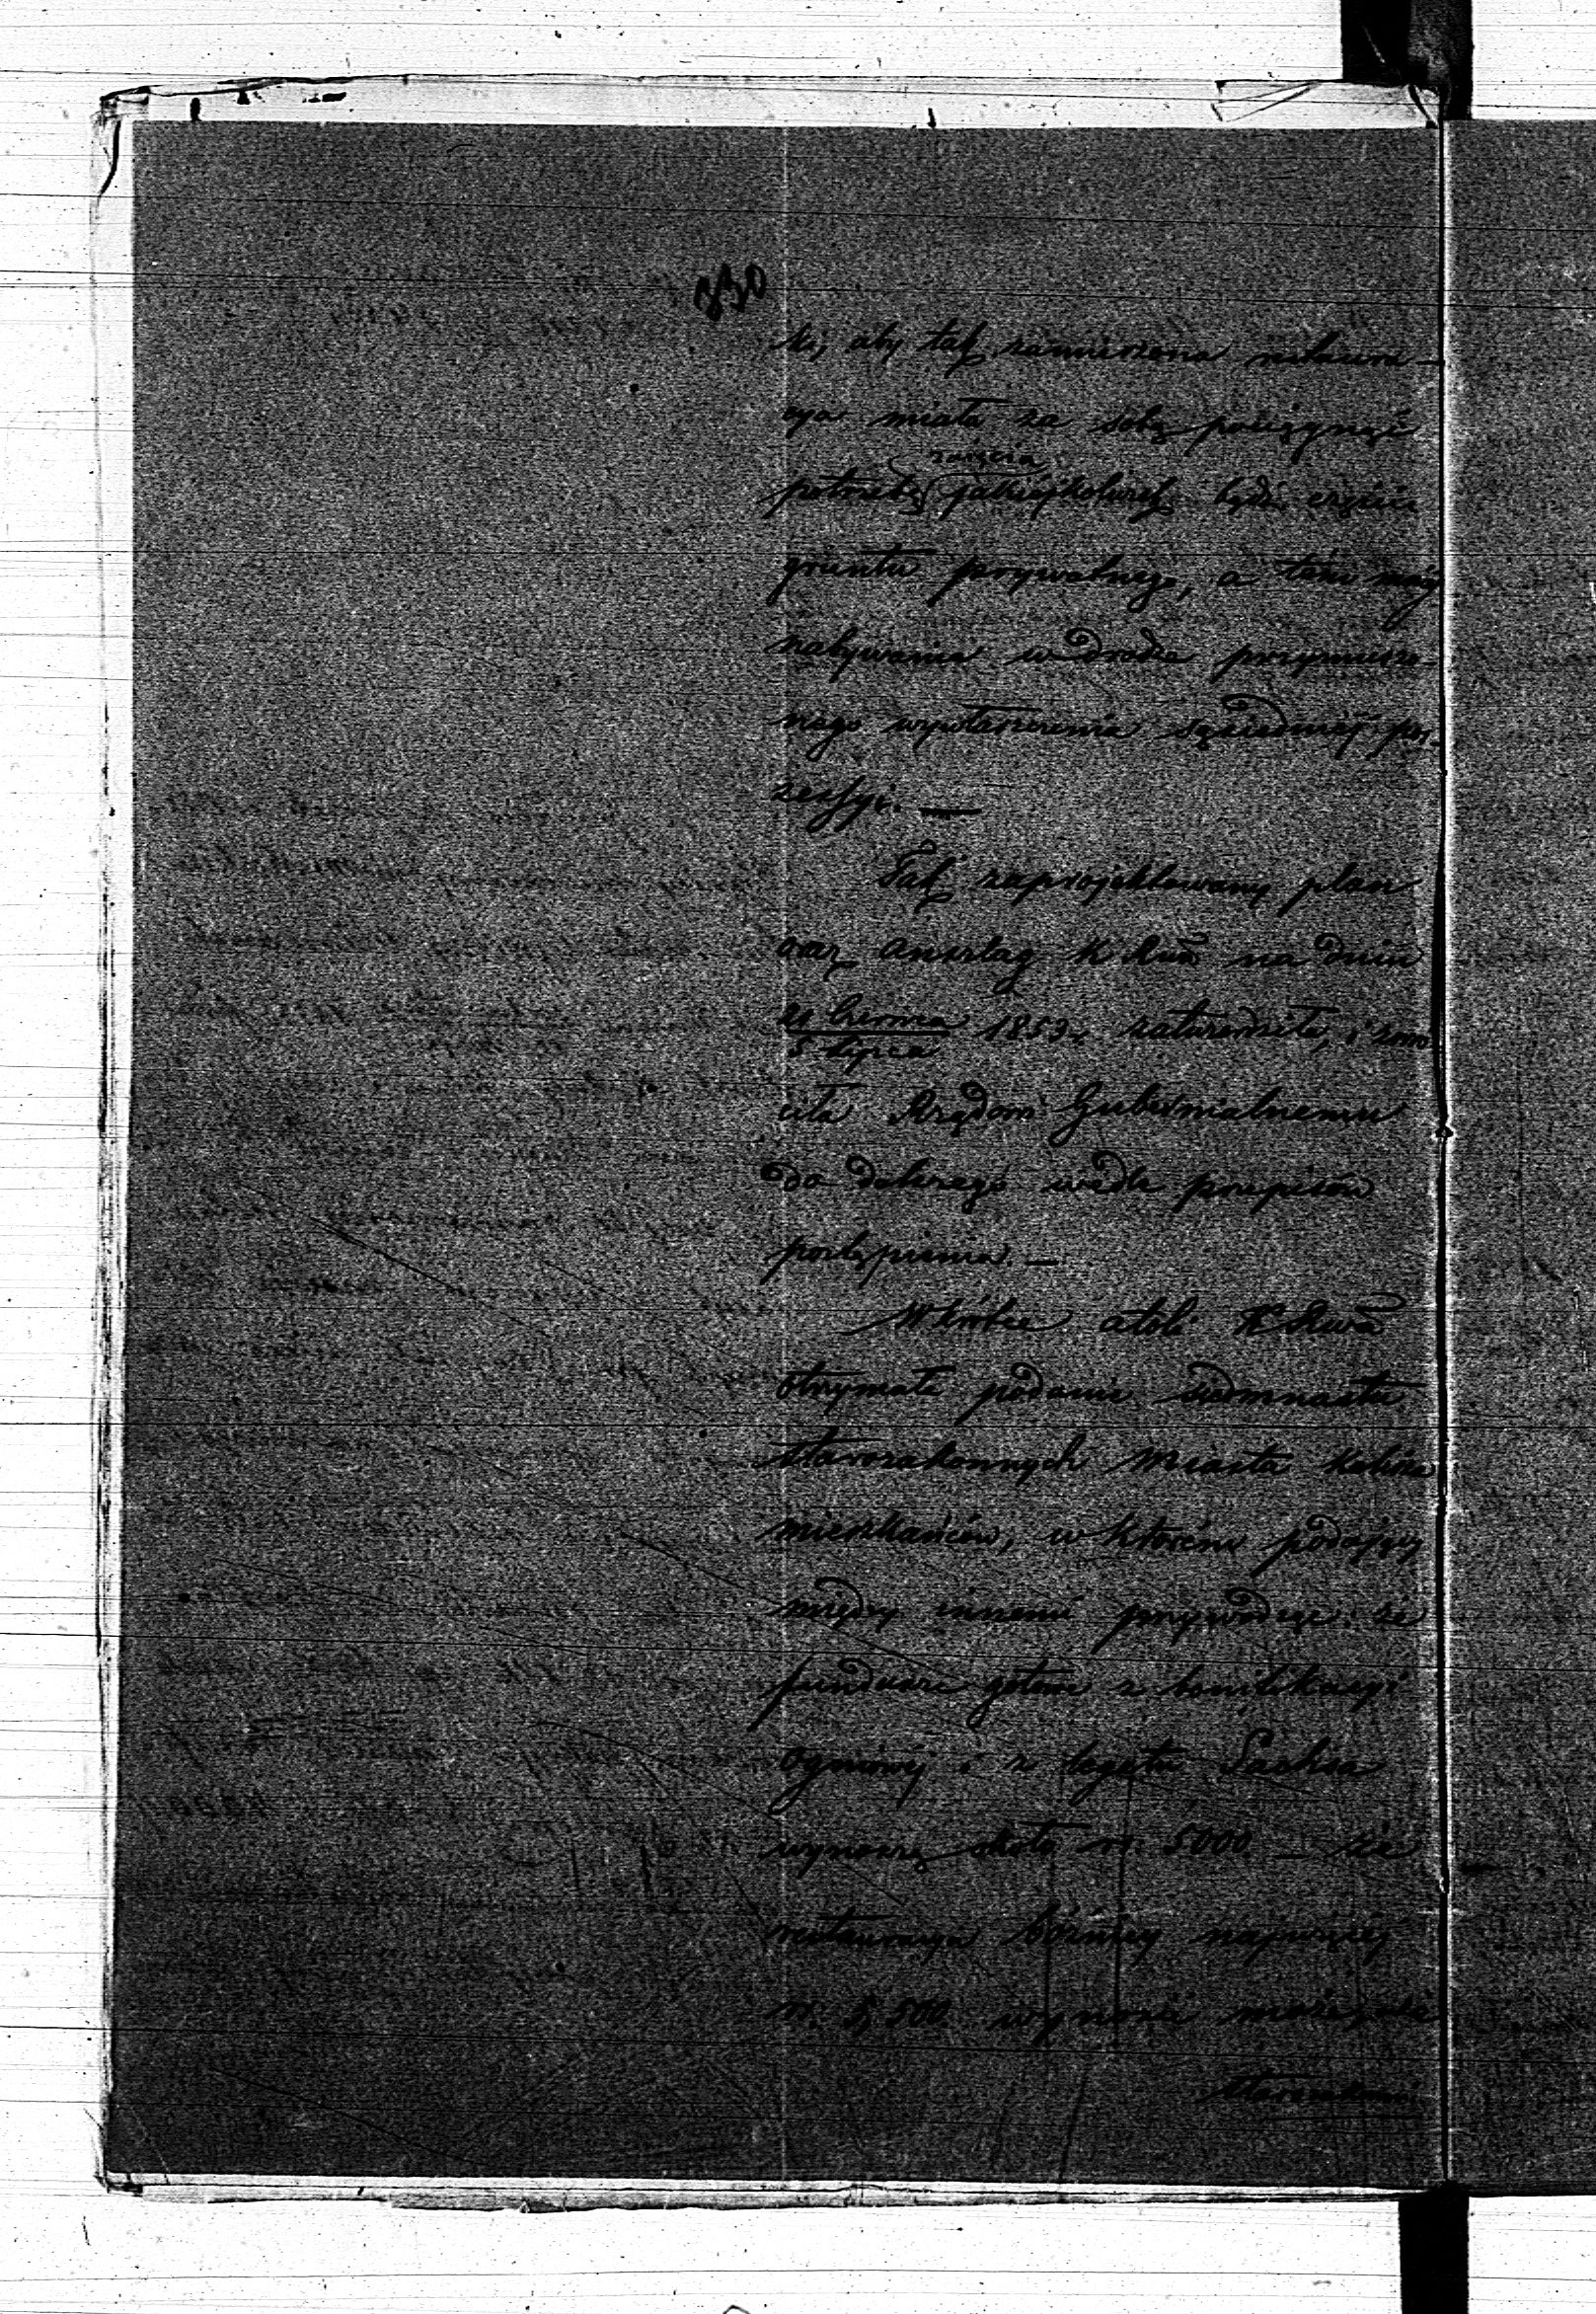 330
ki, aby tak zamierzona restaura-
cya miała za sobą pociągnąć
zajęcia
potrzebę jakiejkolwiek bądź części
gruntu prywatnego, a tém mniéj
nabywania w drodze przymuszo-
nego wywłaszczenia sąsiedniéj po-
sessyi. —
Tak zaprojektowany plan
oraz anszlag K Rwa na dniu
23 Czerwca / 5 Lipca 1853 r. zatwierdziła, i zwró-
ciła Rządowi Gubernialnemu
do dalszego wedle przepisów
postąpienia. —
Wkrótce atoli K Rwa
otrzymała podanie siedmnastu
starozakonnych miasta Kalisza
mieszkańców, w którém podający
między innemi przywodząc: że
fundusze gotowe z bonifikacyi
ogniowéj i z legatu Sachsa
wynoszą około rs. 5000. — że
restauracya bóżnicy najwięcéj
rs. 5,500. wynosić może, że
starozakon